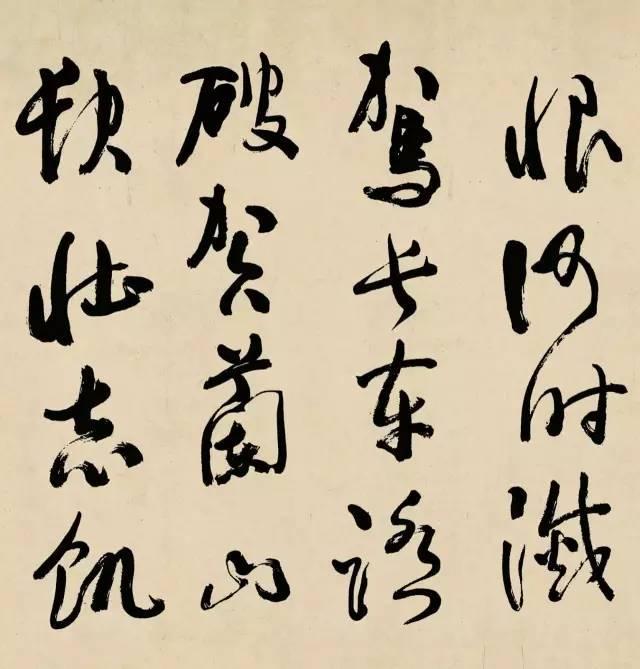 恨何時滅
駕長車踏
破賀蘭山
缺壯志飢